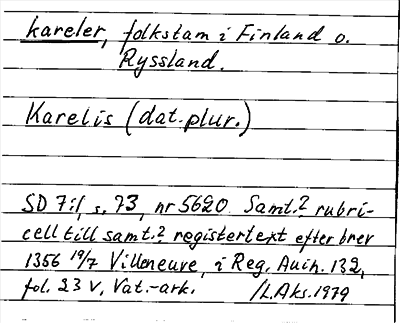 kareler, folkstam i Finland o.
Ryssland.
Karelis (dat. plur.)
SD 7:1, s. 73, nr 5620. Samt.? rubri-
cell till samt.? registertext efter brev
1356 19/7 Villeneuve, i Reg. Avin. 132,
fol. 23 v, Vat.-ark. /L.Aks. 1979